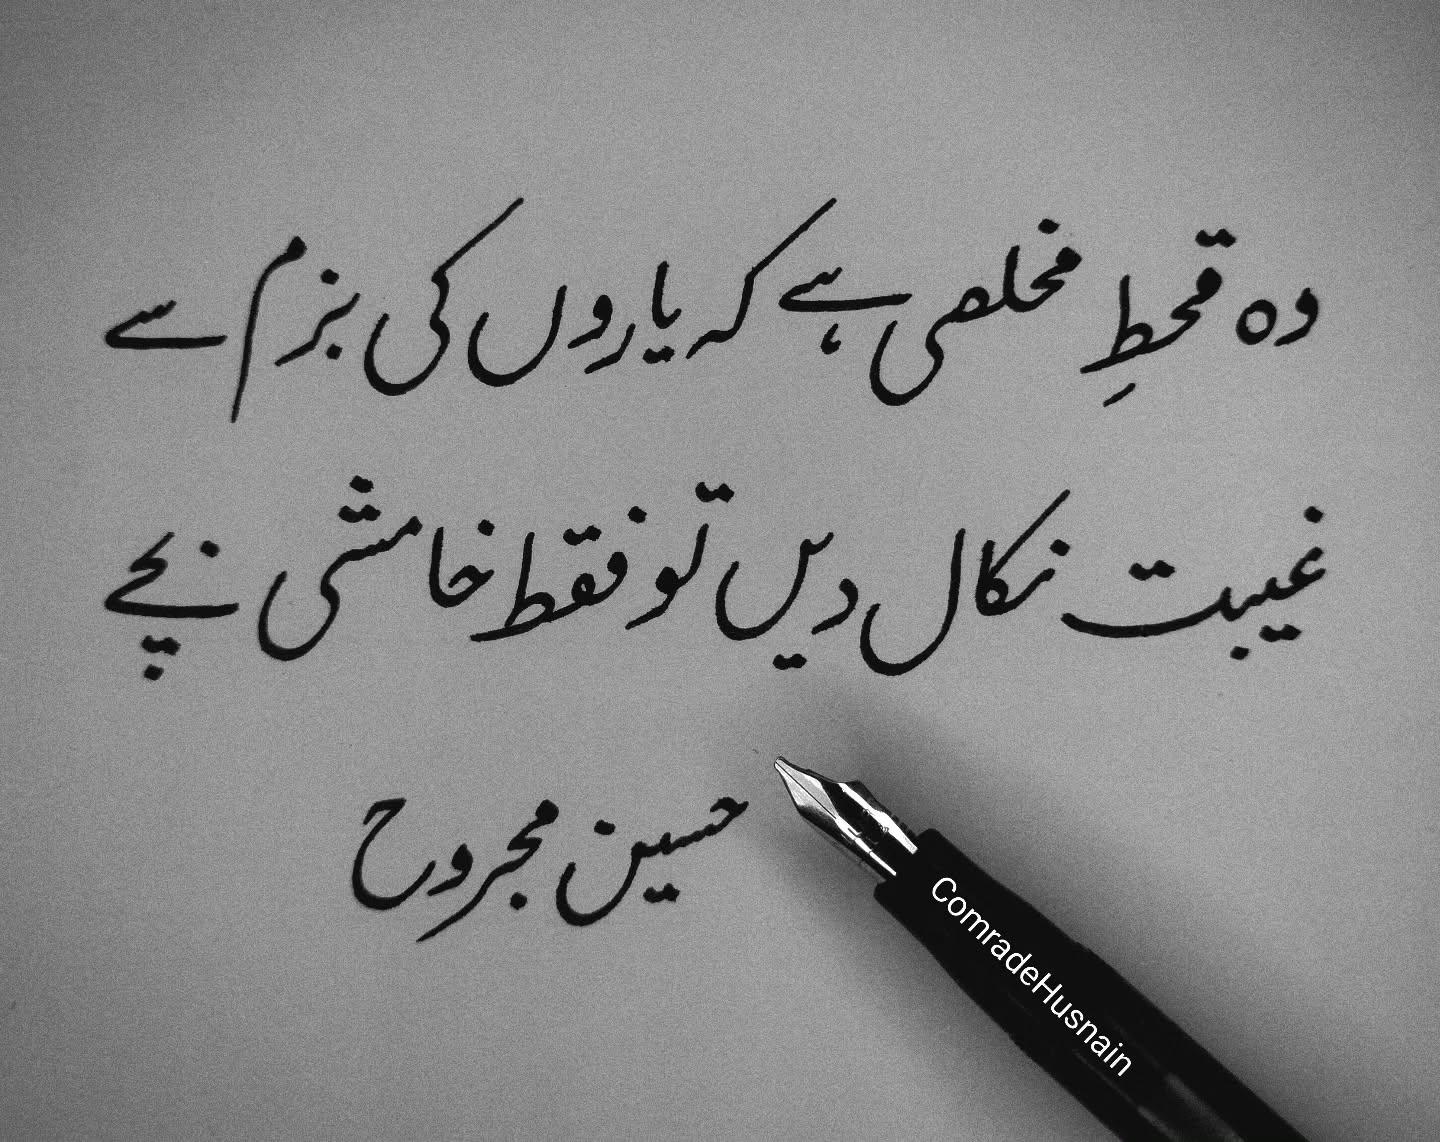 وہ قحطِ مخلصی ہے کہ یاروں کی بزم سے
غیبت نکال دیں تو فقط خامشی بچے
حسین مجروح
ComradeHusnain